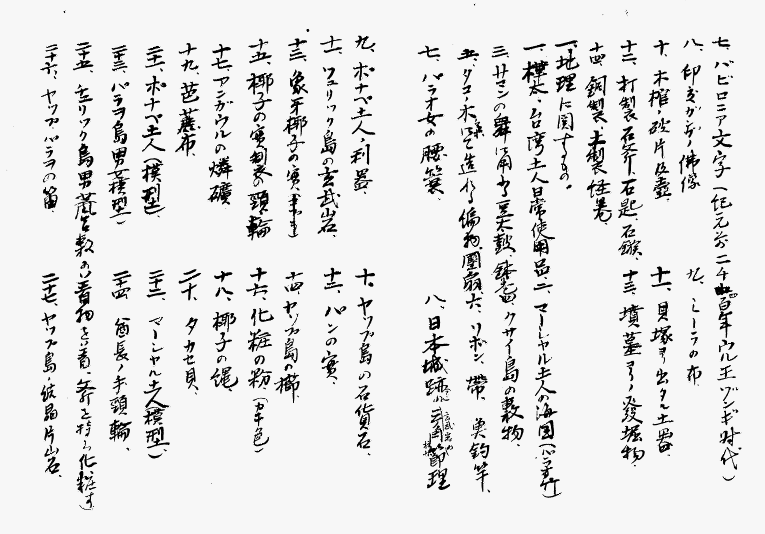 七、バビロニア文字(紀元前二千四百年ウル王ヅンギ時代)
八、印度ガンダーラ佛像　九、ミーラの布
十、木棺破片及壺、十一、貝塚ヨリ出タル土器
十二、打製石斧、石匙、石鏃、十三、墳墓ヨリノ發掘物、
十四、銅製、土製
一、地理に関するもの。
一、樺太、台湾土人日常使用品 二、マーシャル土人の海図
三、サマンの舞に用ふる太鼓、クサイ島の敷物、
五、タコノ木の葉にて造れる編物、團扇、六、リボン、帶、魚釣竿、
七、パラオ女の腰簑、八、日本城跡 三角節理
九、ポナペ土人ノ利器、十、ヤップ島の石貨石、
十一、ウェリック島の玄武岩、十二、パンの實、
十三、象牙椰子の實、十四、ヤップ島の櫛、
十五、椰子の實製の頸輪　十六、化粧の粉(カナ色)
十七、アンガウルの燐礦　十八、椰子の縄、
十九、芭蕉布、二十、タカセ貝、
二十一、ポナペ土人(模型)、二十二、マーシャル土人(模型)、
二十三、パラオ島男女(模型)　二十四、酋長ノ手頸輪、
二十五、ウェリック島男 着物を着、斧を持ち化粧す
二十六、ヤップ、パラオの笛、二十七、ヤップ島ノ結晶片岩、